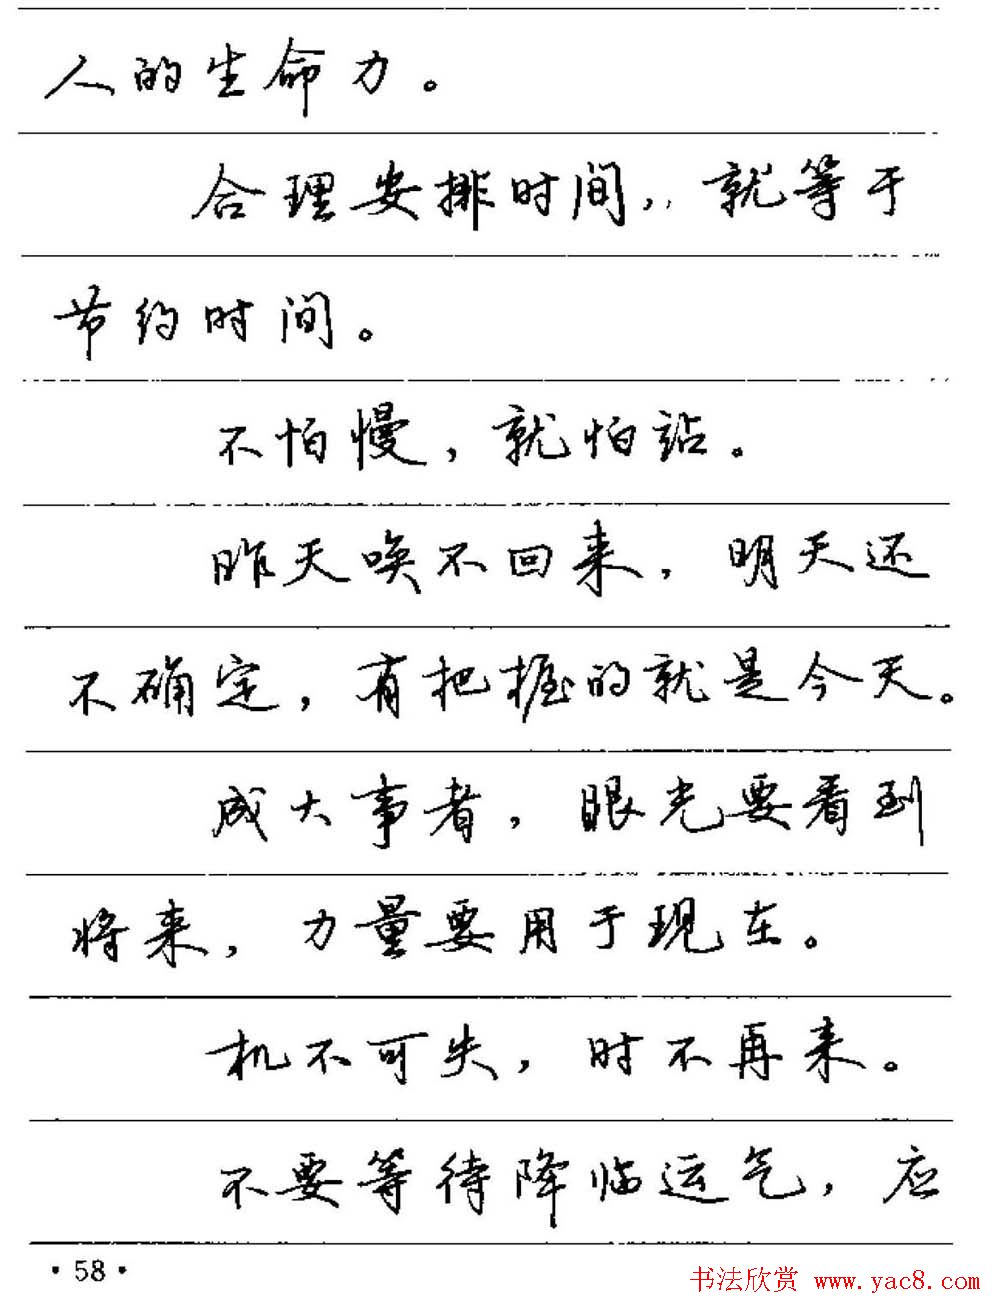 人的生命力。
合理安排时间，就等于
节约时间。
不怕慢，就怕站。
昨天唤不回来，明天还
不确定，有把握的就是今天。
成大事者，眼光要看到
将来，力量要用于现在。
机不可失，时不再来。
不要等待降临运气，应
·58·
书法欣赏 www.yac8.com